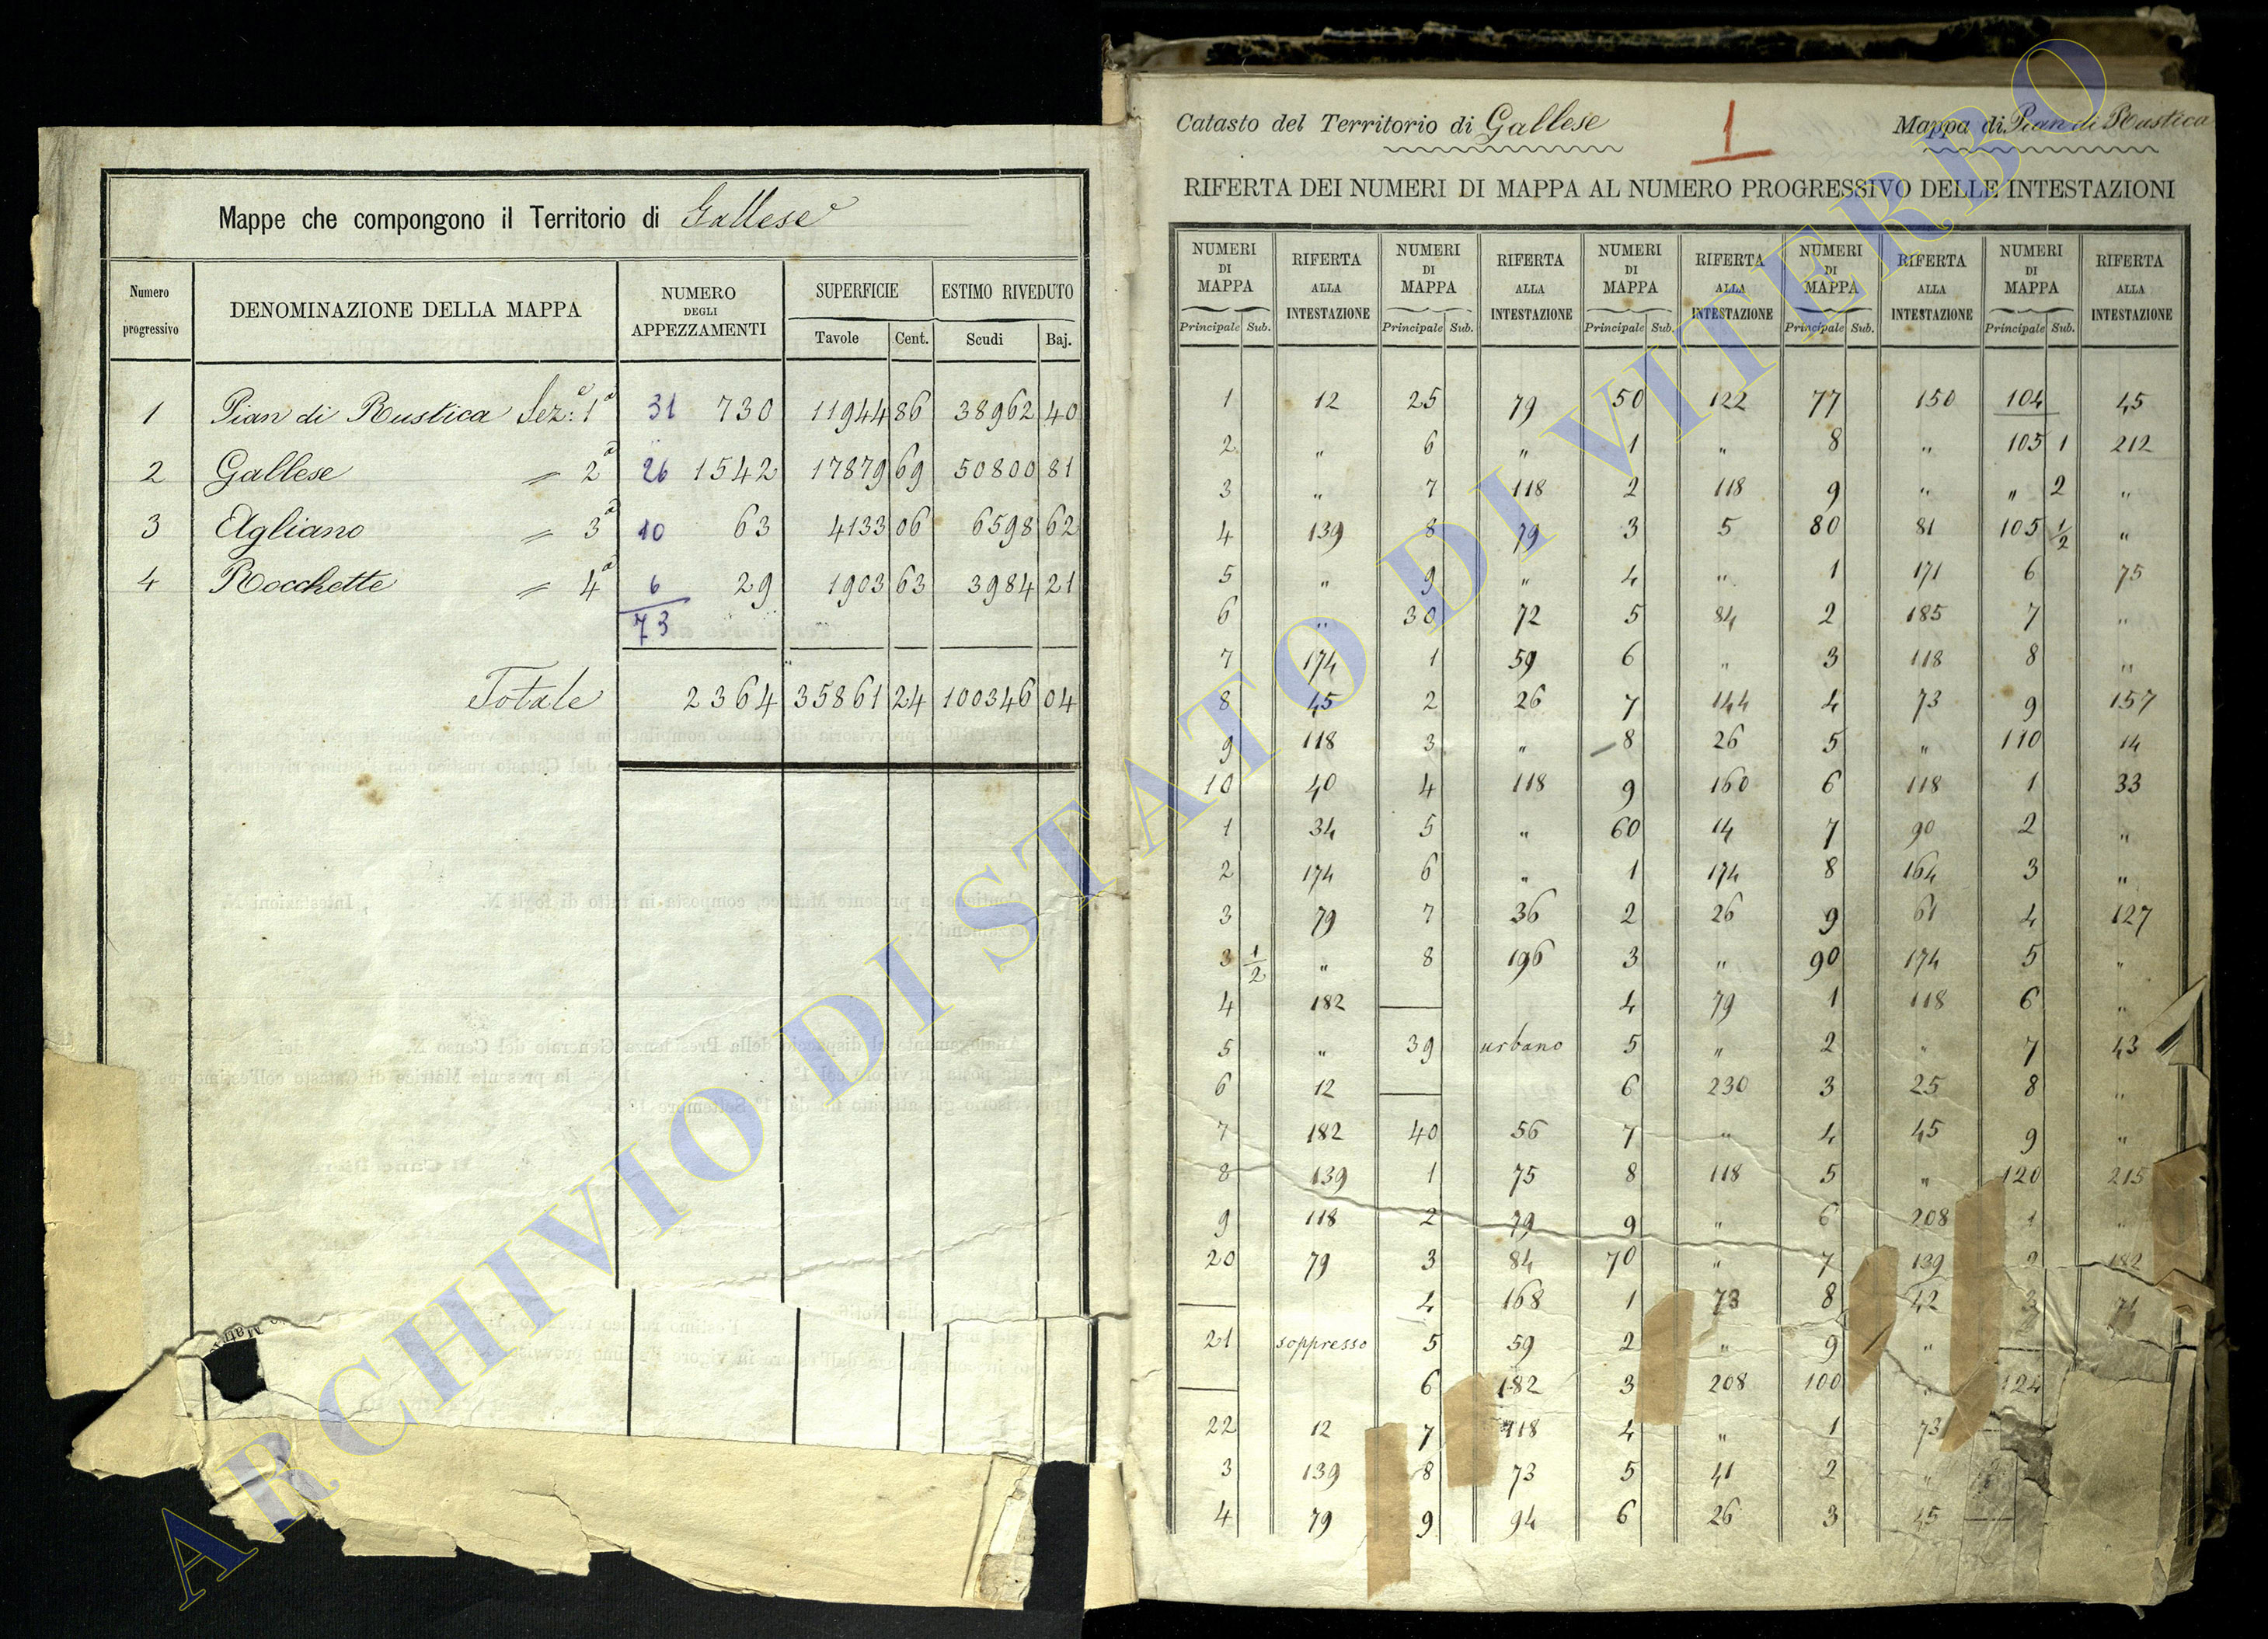 Mappe che compongono il Territorio di Gallese
Numero progressivo | DENOMINAZIONE DELLA MAPPA | NUMERO DEGLI APPEZZAMENTI | SUPERFICIE | ESTIMO RIVEDUTO
Tavole | Cent. | Scudi | Baj.
1 Pian di Rustica Sez:e 1a 31 730 11944 86 38962 40
2 Gallese " 2a 26 1542 17879 69 50800 81
3 Agliano " 3a 10 63 4133 06 6598 62
4 Rocchette " 4a 6 29 1903 63 3984 21
73
Totale 2364 35861 24 100346 04
Catasto del Territorio di Gallese 1 Mappa di Pian di Rustica
RIFERTA DEI NUMERI DI MAPPA AL NUMERO PROGRESSIVO DELLE INTESTAZIONI
NUMERI DI MAPPA | RIFERTA ALLA INTESTAZIONE | NUMERI DI MAPPA | RIFERTA ALLA INTESTAZIONE | NUMERI DI MAPPA | RIFERTA ALLA INTESTAZIONE | NUMERI DI MAPPA | RIFERTA ALLA INTESTAZIONE | NUMERI DI MAPPA | RIFERTA ALLA INTESTAZIONE
Principale Sub. Principale Sub. Principale Sub. Principale Sub. Principale Sub.
1 12 25 79 50 122 77 150 104 45
2 " 6 " 1 " 8 " 105 1 212
3 " 7 118 2 118 9 " " 2 "
4 139 8 79 3 5 80 81 105 1/2 "
5 " 9 " 4 " 1 171 6 75
6 " 30 72 5 84 2 185 7 "
7 174 1 59 6 " 3 118 8 "
8 45 2 26 7 144 4 73 9 157
9 118 3 " 8 26 5 " 110 14
10 40 4 118 9 160 6 118 1 33
1 34 5 " 60 14 7 90 2 "
2 174 6 " 1 174 8 164 3 "
3 79 7 36 2 26 9 61 4 127
3 1/2 " 8 196 3 " 90 174 5 "
4 182 4 79 1 118 6 "
5 " 39 urbano 5 " 2 " 7 43
6 12 6 230 3 25 8 "
7 182 40 56 7 " 4 45 9 "
8 139 1 75 8 118 5 " 120 215
9 118 2 79 9 " 6 208 1 "
20 79 3 84 70 " 7 139 2 182
4 168 1 73 8 42 3 71
21 soppresso 5 59 2 " 9 "
6 182 3 208 100 124
22 12 7 118 4 " 1 73
3 139 8 73 5 41 2 "
4 79 9 94 6 26 3 45
ARCHIVIO DI STATO DI VITERBO